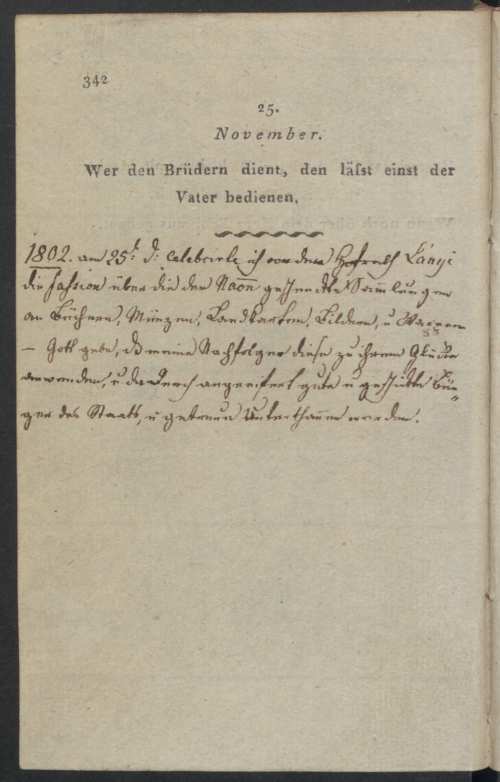 342
25.
November.
Wer den Brüdern dient, den läſst einst der
Vater bedienen.
1802. am 25t d: celebrirte ich vor dem Hofrath Lányi
die Fassion über die der Naon geschenckten Sam̅lungen
an Büchern, Münzen, Landkarten, Bildern, u Wappen
– Gott gebe, dß meine Nachfolger diese zu ihrem Glücke
anwenden, u dadurch angeeifert gute u geschickte Bür„
ger des Staats, u getreue Unterthanen werden.